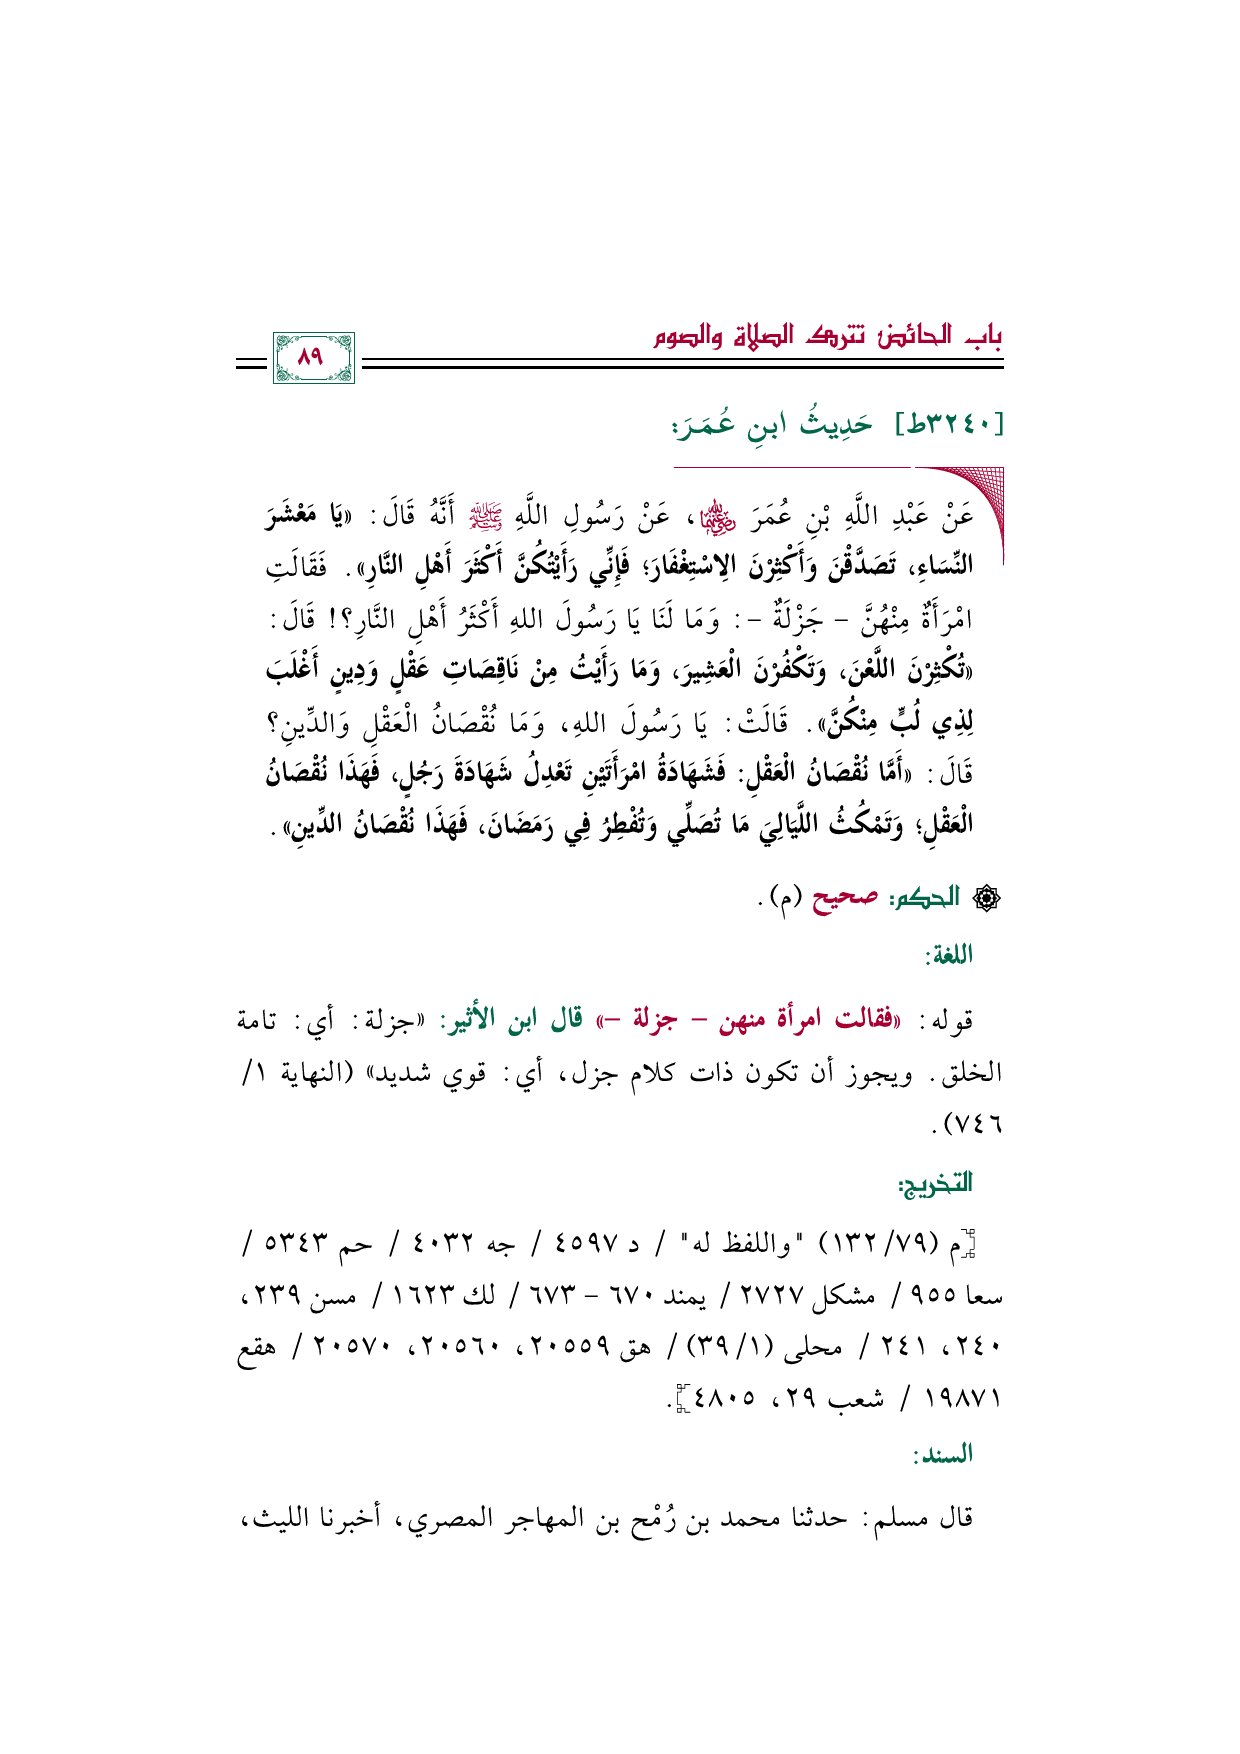 باب الحائض تترك الصلاة والصوم
٨٩
[٣٢٤٠ط] حَدِيثُ ابنِ عُمَرَ:
عَنْ عَبْدِ اللَّهِ بْنِ عُمَرَ رضي الله عنهما، عَنْ رَسُولِ اللَّهِ ﷺ أَنَّهُ قَالَ: «يَا مَعْشَرَ
النِّسَاءِ، تَصَدَّقْنَ وَأَكْثِرْنَ الِاسْتِغْفَارَ؛ فَإِنِّي رَأَيْتُكُنَّ أَكْثَرَ أَهْلِ النَّارِ». فَقَالَتِ
امْرَأَةٌ مِنْهُنَّ - جَزْلَةٌ -: وَمَا لَنَا يَا رَسُولَ اللهِ أَكْثَرُ أَهْلِ النَّارِ؟! قَالَ:
«تُكْثِرْنَ اللَّعْنَ، وَتَكْفُرْنَ الْعَشِيرَ، وَمَا رَأَيْتُ مِنْ نَاقِصَاتِ عَقْلٍ وَدِينٍ أَغْلَبَ
لِذِي لُبٍّ مِنْكُنَّ». قَالَتْ: يَا رَسُولَ اللهِ، وَمَا نُقْصَانُ الْعَقْلِ وَالدِّينِ؟
قَالَ: «أَمَّا نُقْصَانُ الْعَقْلِ: فَشَهَادَةُ امْرَأَتَيْنِ تَعْدِلُ شَهَادَةَ رَجُلٍ، فَهَذَا نُقْصَانُ
الْعَقْلِ؛ وَتَمْكُثُ اللَّيَالِيَ مَا تُصَلِّي وَتُفْطِرُ فِي رَمَضَانَ، فَهَذَا نُقْصَانُ الدِّينِ».
الحكم: صحيح (م).
اللغة:
قوله: «فقالت امرأة منهن - جزلة -» قال ابن الأثير: «جزلة: أي: تامة
الخلق. ويجوز أن تكون ذات كلام جزل، أي: قوي شديد» (النهاية ١/
٧٤٦).
التخريج:
[م (٧٩/ ١٣٢) "واللفظ له" / د ٤٥٩٧ / جه ٤٠٣٢ / حم ٥٣٤٣ /
سعا ٩٥٥ / مشكل ٢٧٢٧ / يمند ٦٧٠ - ٦٧٣ / لك ١٦٢٣ / مسن ٢٣٩،
٢٤٠، ٢٤١ / محلى (١/ ٣٩) / هق ٢٠٥٥٩، ٢٠٥٦٠، ٢٠٥٧٠ / هقع
١٩٨٧١ / شعب ٢٩، ٤٨٠٥].
السند:
قال مسلم: حدثنا محمد بن رُمْح بن المهاجر المصري، أخبرنا الليث،